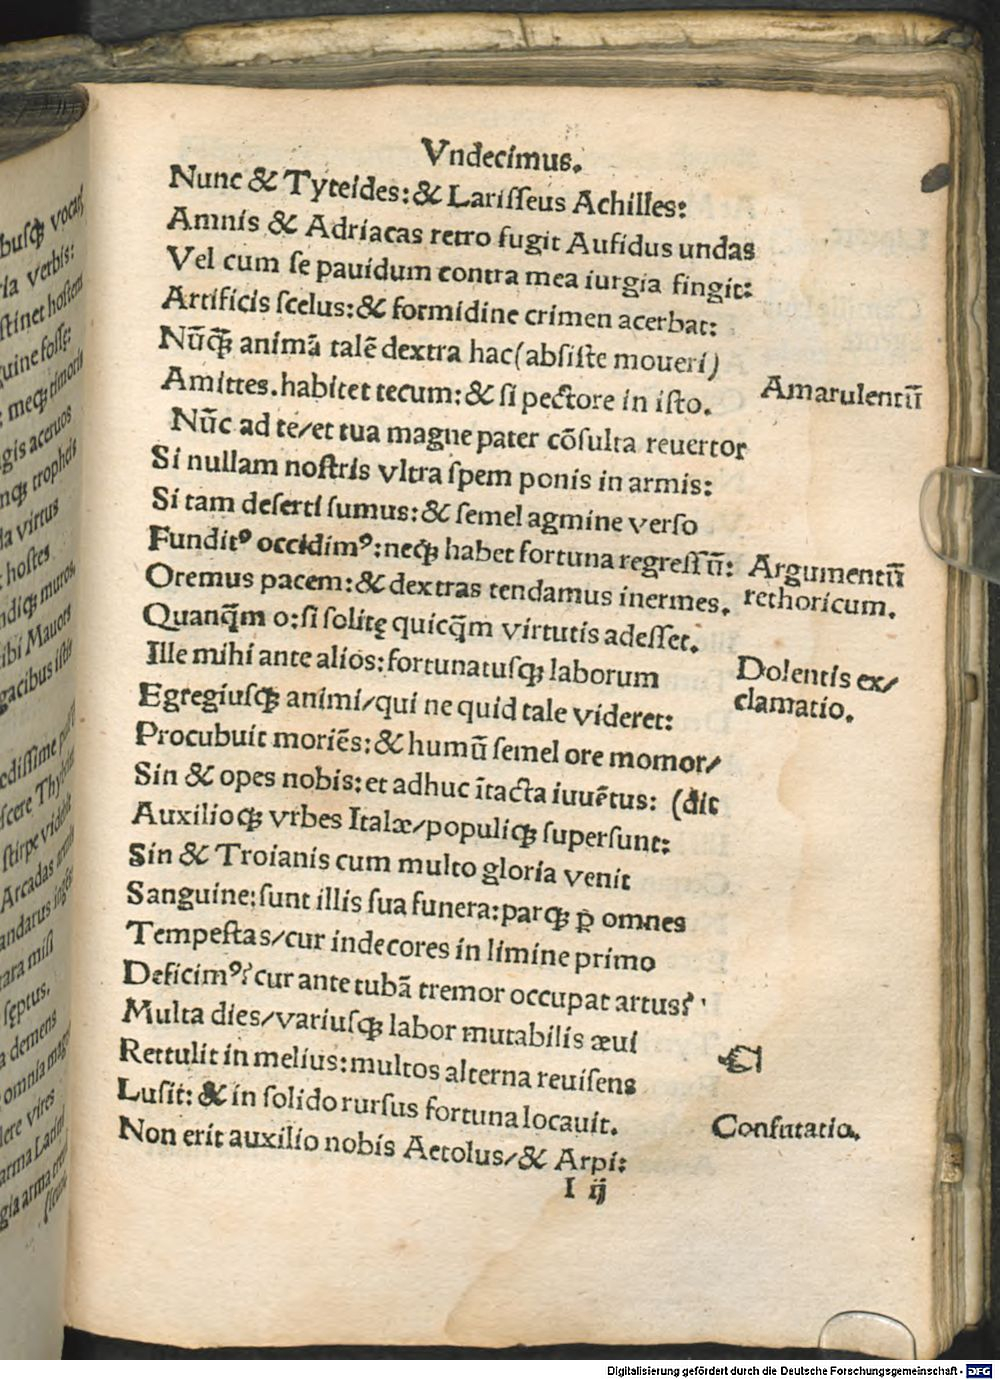 Vndecimus.
Nunc & Tyteides: & Larisseus Achilles:
Amnis & Adriacas retro fugit Aufidus undas
Vel cum se pauidum contra mea iurgia fingit:
Artificis scelus: & formidine crimen acerbat:
Nũꝙ̃ animã talẽ dextra hac (absiste moueri)
Amittes. habitet tecum: & si pectore in isto.
Amarulentũ
Nũc ad te/et tua magne pater cõsulta reuertor
Si nullam nostris vltra spem ponis in armis:
Si tam deserti sumus: & semel agmine verso
Funditꝰ occidimꝰ: neqꝫ habet fortuna regressũ:
Argumentũ
Oremus pacem: & dextras tendamus inermes.
rethoricum.
Quanꝙ̃m o: si solitę quicꝙ̃m virtutis adesset.
Ille mihi ante alios: fortunatusqꝫ laborum
Dolentis ex/
Egregiusqꝫ animi/qui ne quid tale videret:
clamatio.
Procubuit moriẽs: & humũ semel ore momor/
Sin & opes nobis: et adhuc ĩtacta iuuẽtus: (dit
Auxilioqꝫ vrbes Italæ/populiqꝫ supersunt:
Sin & Troianis cum multo gloria venit
Sanguine: sunt illis sua funera: parqꝫ ꝑ omnes
Tempestas/cur indecores in limine primo
Deficimꝰ? cur ante tubã tremor occupat artus?
Multa dies/variusqꝫ labor mutabilis æui
Rettulit in melius: multos alterna reuisens
Lusit: & in solido rursus fortuna locauit.
Confutatio.
Non erit auxilio nobis Aetolus/& Arpi:
I ij
Digitalisierung gefördert durch die Deutsche Forschungsgemeinschaft - DFG